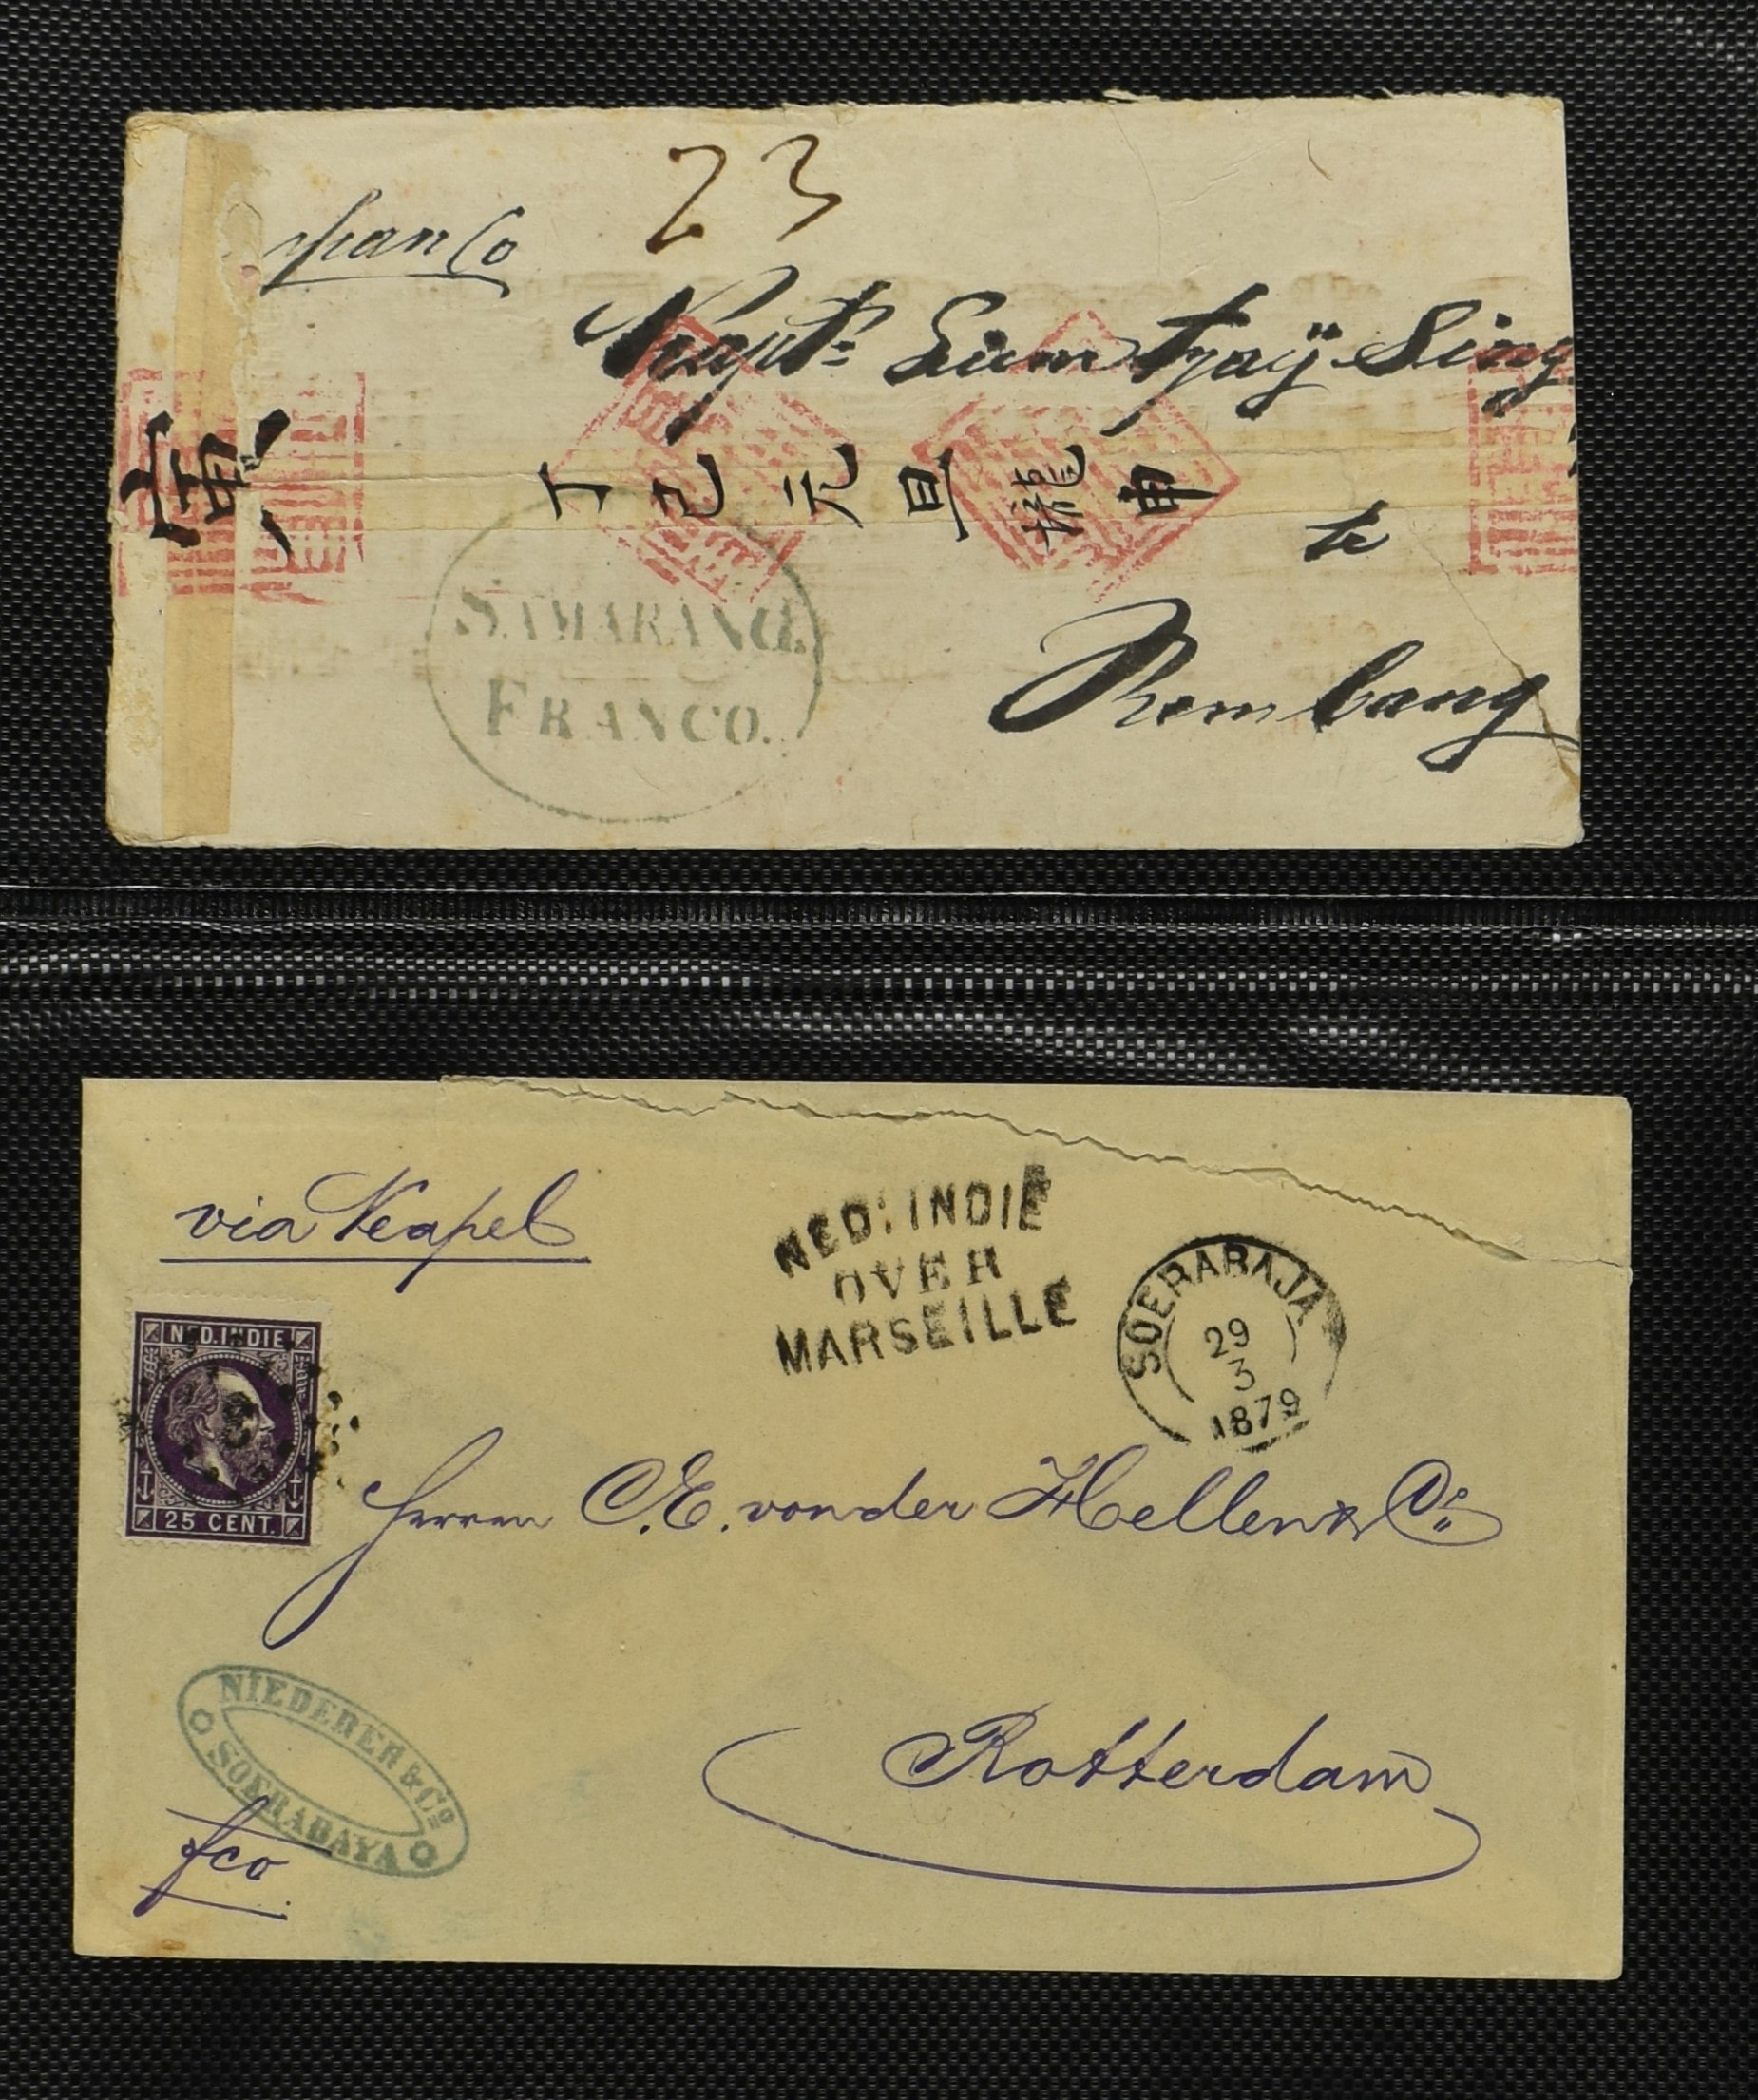 franco
23
Kapt: Liem Tjaij Sing
丁巳元旦 瀧 申
te
Rembang
SAMARANG.
FRANCO.
via Neapel
NED. INDIE
OVER
MARSEILLE
SOERABAJA
29
3
1879
NED. INDIE
25 CENT.
Herren C. E. von der Hellen & Co
Rotterdam
NIEDERER & Co
SOERABAYA
fco